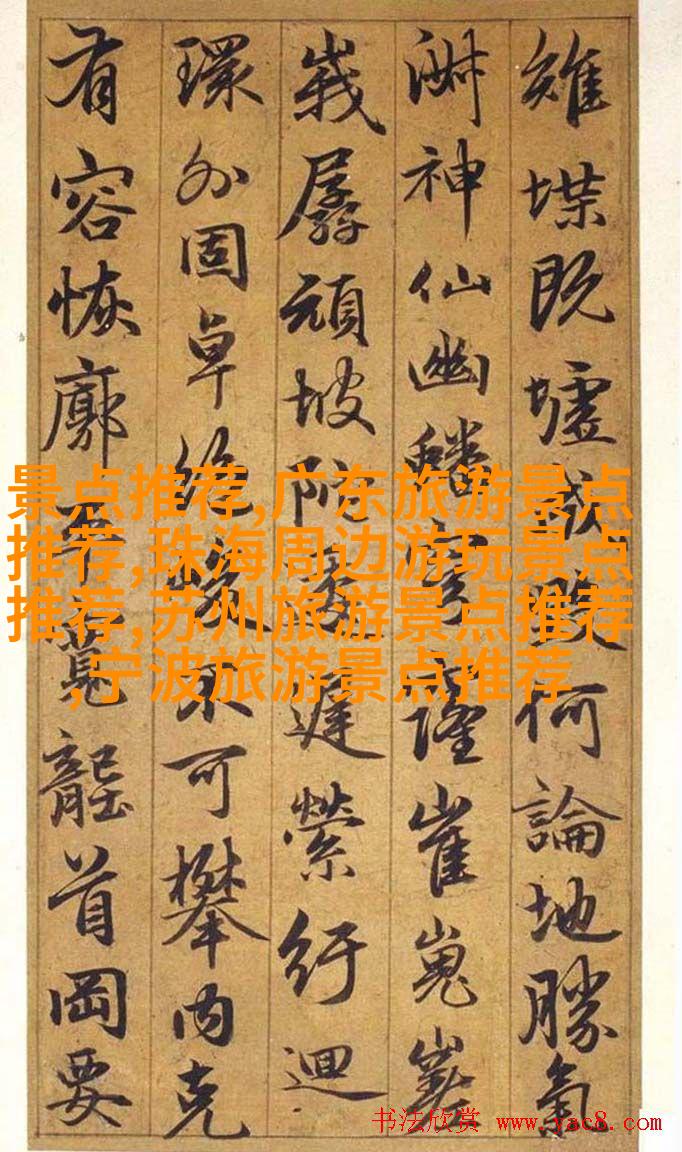 雉堞既墟何論地勝氣
神仙幽崔嵬嵯
峩孱頑坡陀遲縈紆迴
環外固卓絶不可攀内克
有容恢廓平寬龍首岡要
景点推荐,广东旅游景点
推荐,珠海周边游玩景点
推荐,苏州旅游景点推荐
,宁波旅游景点推荐
书法欣赏 www.yac8.com